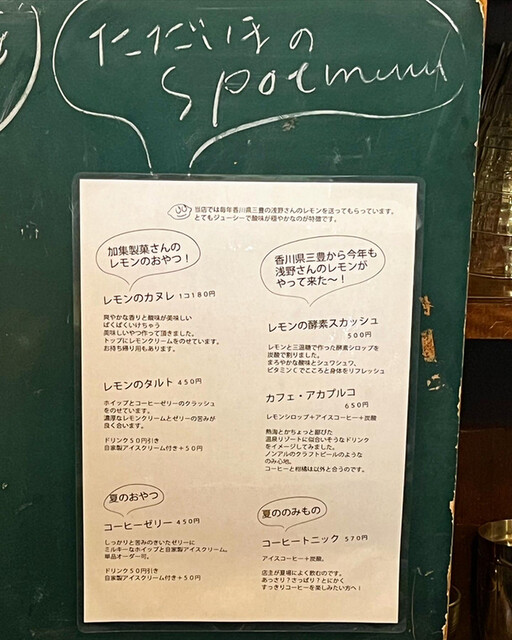 ただいまの
Spotmenu
当店では毎年香川県三豊の浅野さんのレモンを送ってもらっています。
とてもジューシーで酸味が穏やかなのが特徴です。
加集製菓さんの
レモンのおやつ！
レモンのカヌレ 1コ180円
爽やかな香りと酸味が美味しい
ぱくぱくいけちゃう
美味しいやつ作って頂きました。
トップにレモンクリームをのせています。
お持ち帰り用もあります。
レモンのタルト 450円
ホイップとコーヒーゼリーのクラッシュ
をのせています。
濃厚なレモンクリームとゼリーの苦みが
良く合います。
ドリンク50円引き
自家製アイスクリーム付き＋50円
夏のおやつ
コーヒーゼリー 450円
しっかりと苦みのきいたゼリーに
ミルキーなホイップと自家製アイスクリーム。
単品オーダー可。
ドリンク50円引き
自家製アイスクリーム付き＋50円
香川県三豊から今年も
浅野さんのレモンが
やって来た〜！
レモンの酵素スカッシュ
500円
レモンと三温糖で作った酵素シロップを
炭酸で割りました。
まろやかな酸味とシュワシュワ、
ビタミンCでこころと身体をリフレッシュ
カフェ・アカプルコ
650円
レモンシロップ＋アイスコーヒー＋炭酸
熱海とかちょっと鄙びた
温泉リゾートに似合いそうなドリンク
をイメージしてみました。
ノンアルのクラフトビールのような
のみ心地。
コーヒーと柑橘は以外と合うのです。
夏ののみもの
コーヒートニック 570円
アイスコーヒー＋炭酸。
店主が夏場によく飲むのです。
あっさり？さっぱり？とにかく
すっきりコーヒーを楽しみたい方へ！